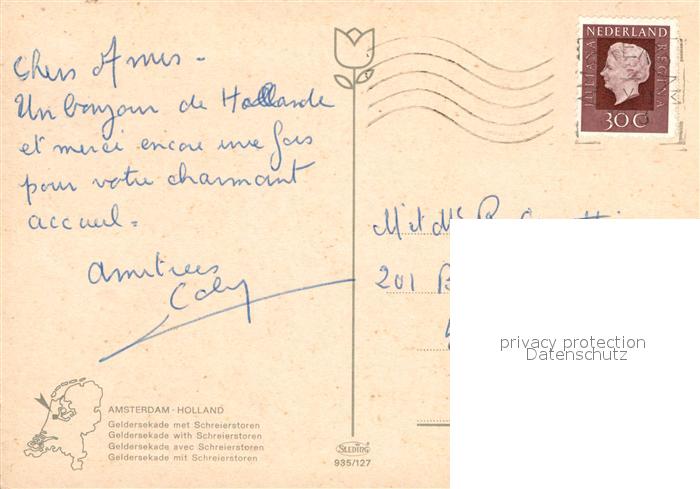 Chers Amis -
Un bonjour de Hollande
et merci encore une fois
pour votre charmant
accueil.
Amitiées
NEDERLAND
JULIANA
REGINA
30 C
AM
M et M
201 B
privacy protection
Datenschutz
AMSTERDAM - HOLLAND
Geldersekade met Schreierstoren
Geldersekade with Schreierstoren
Geldersekade avec Schreierstoren
Geldersekade mit Schreierstoren
SLEDING
935/127